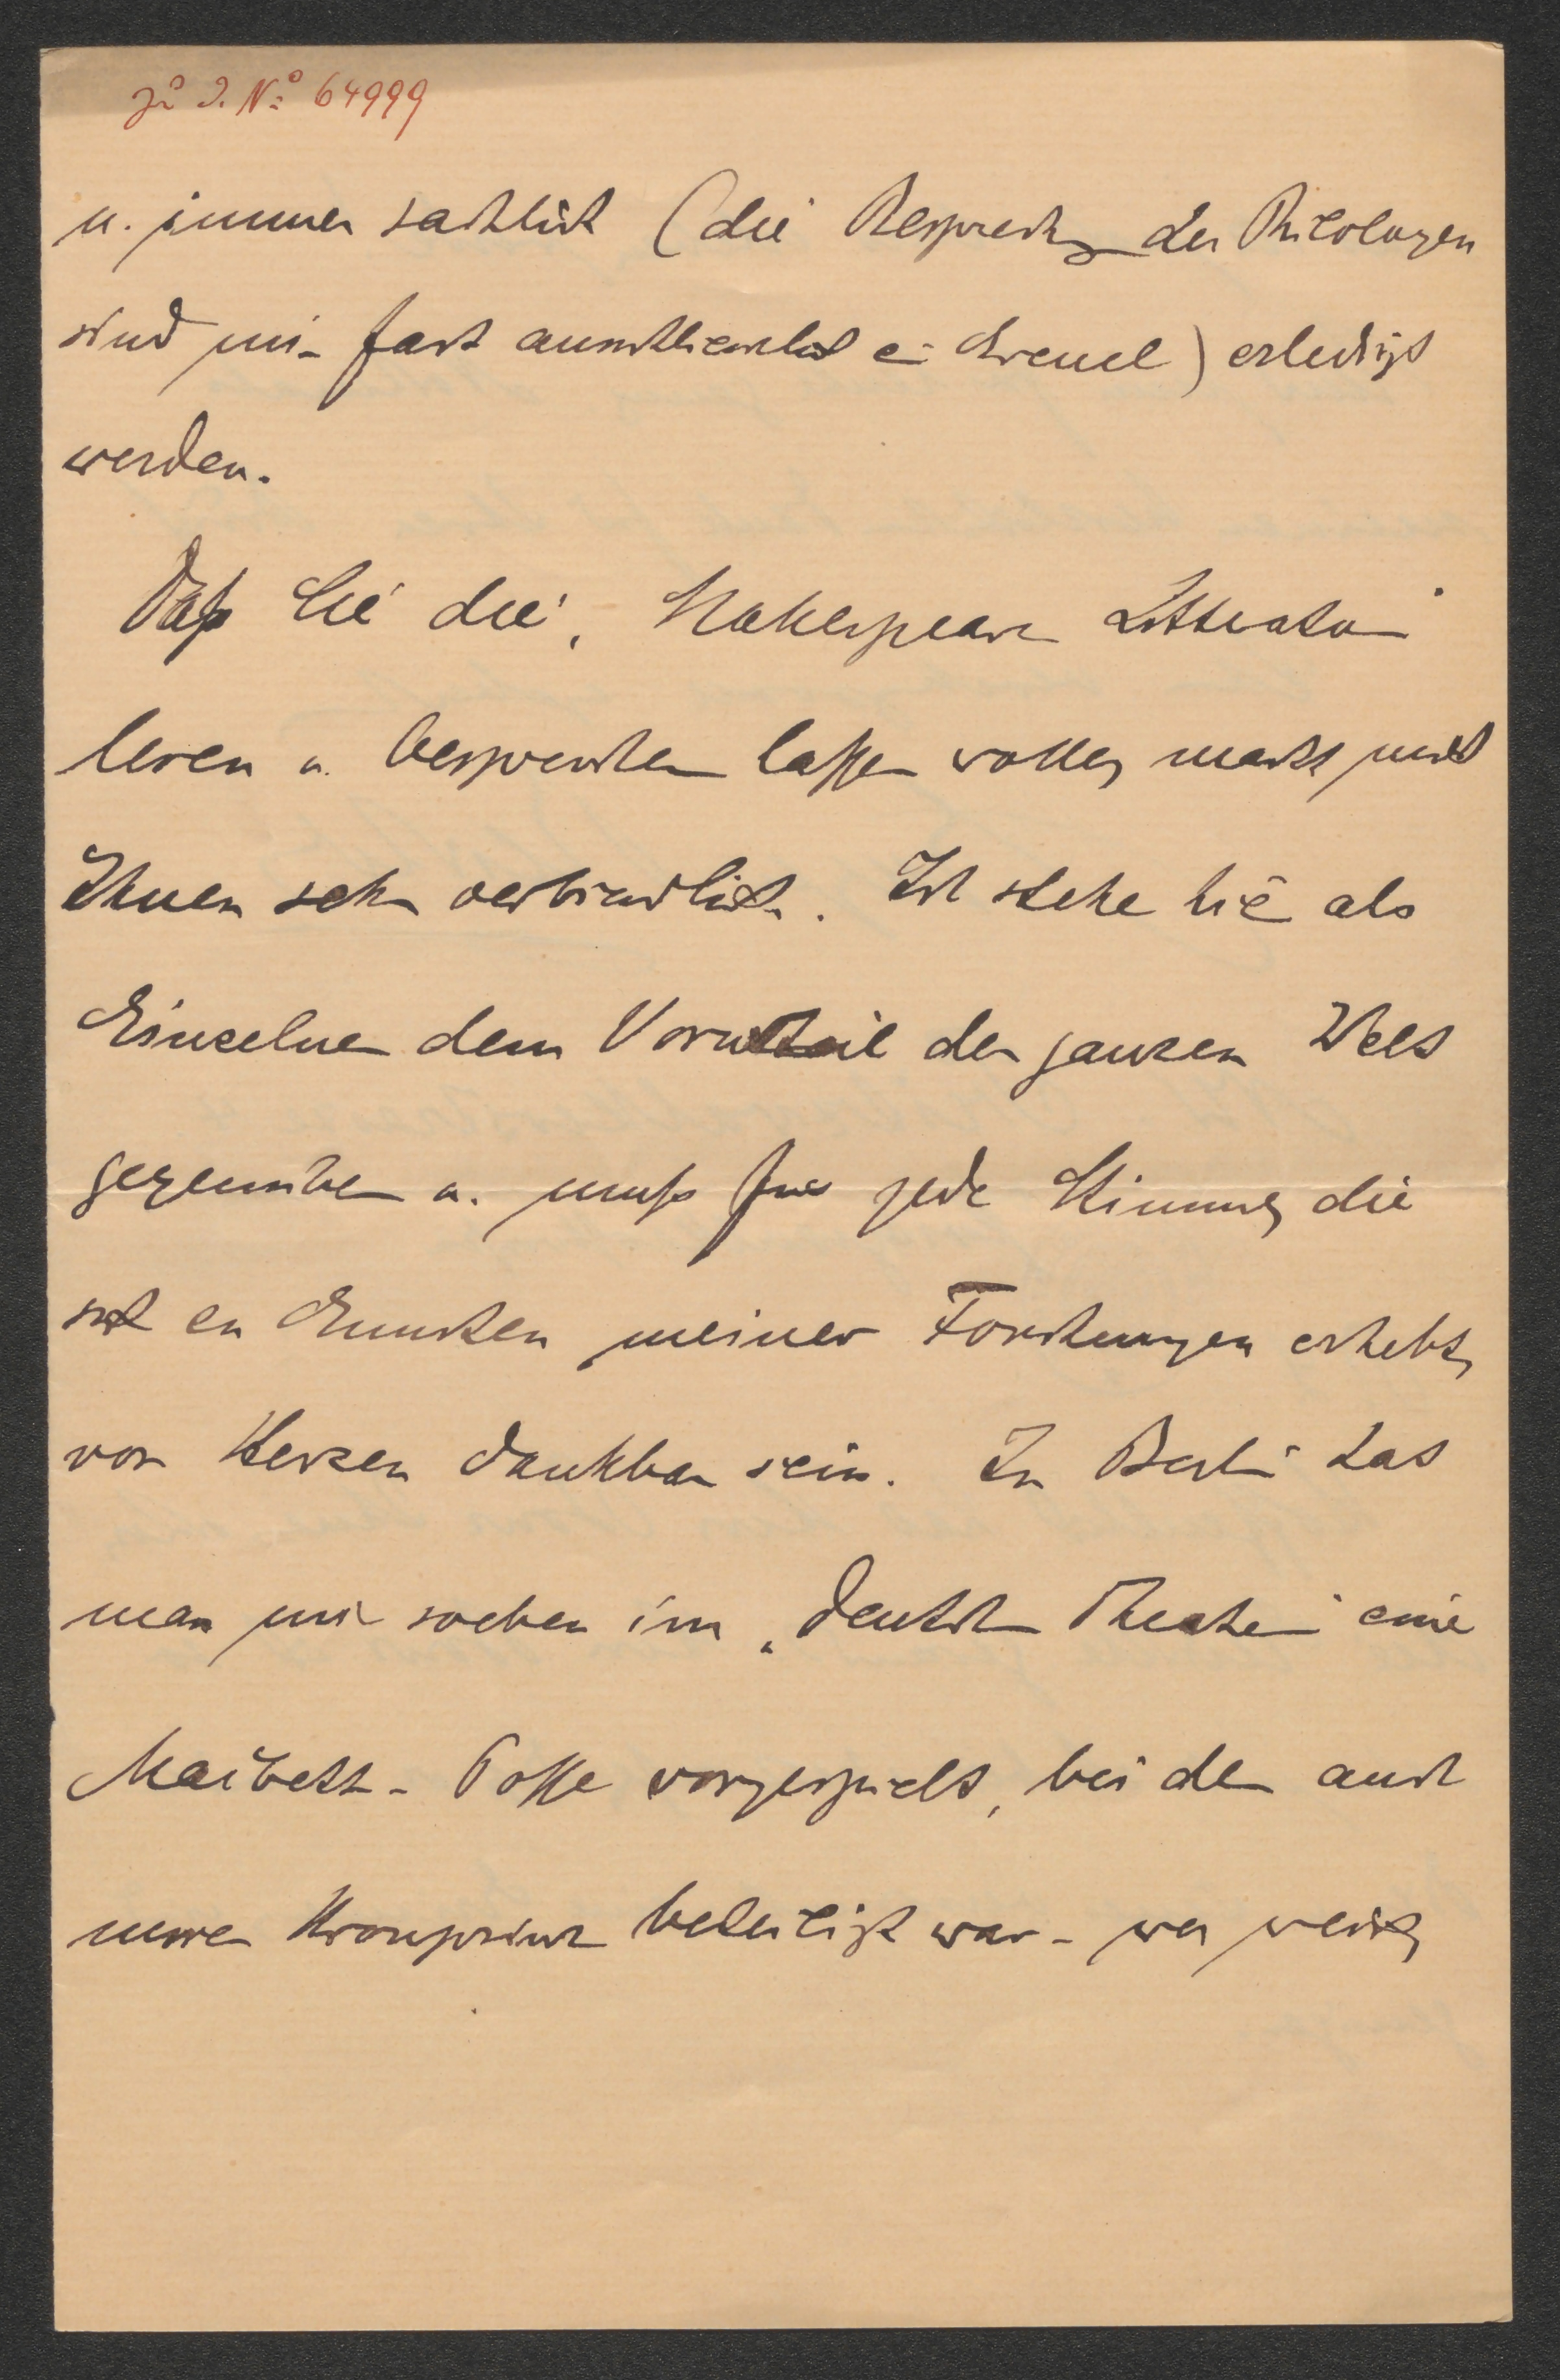 zu I. No 64999
u. immer sachlich (die Besprechg der Philologen
sind mir fast ausschliesslich ein Greuel) erledigt
werden.
Daß Sie die „Shakespeare Litteratur“
lesen u. besprechen lassen wollen, macht mich
Ihnen sehr verbindlich. Ich stehe hie als
Einzelner dem Vorurteil der ganzen Welt
gegenüber u. muß für jede Stimme, die
sich zu Gunsten meiner Forschungen erhebt,
von Herzen dankbar sein. In Berlin hat
man mir soeben im „Deutsch Theater“ eine
Macbeth-Posse vorgespielt, bei der auch
unser Kronprinz beteiligt war - wer weiß,